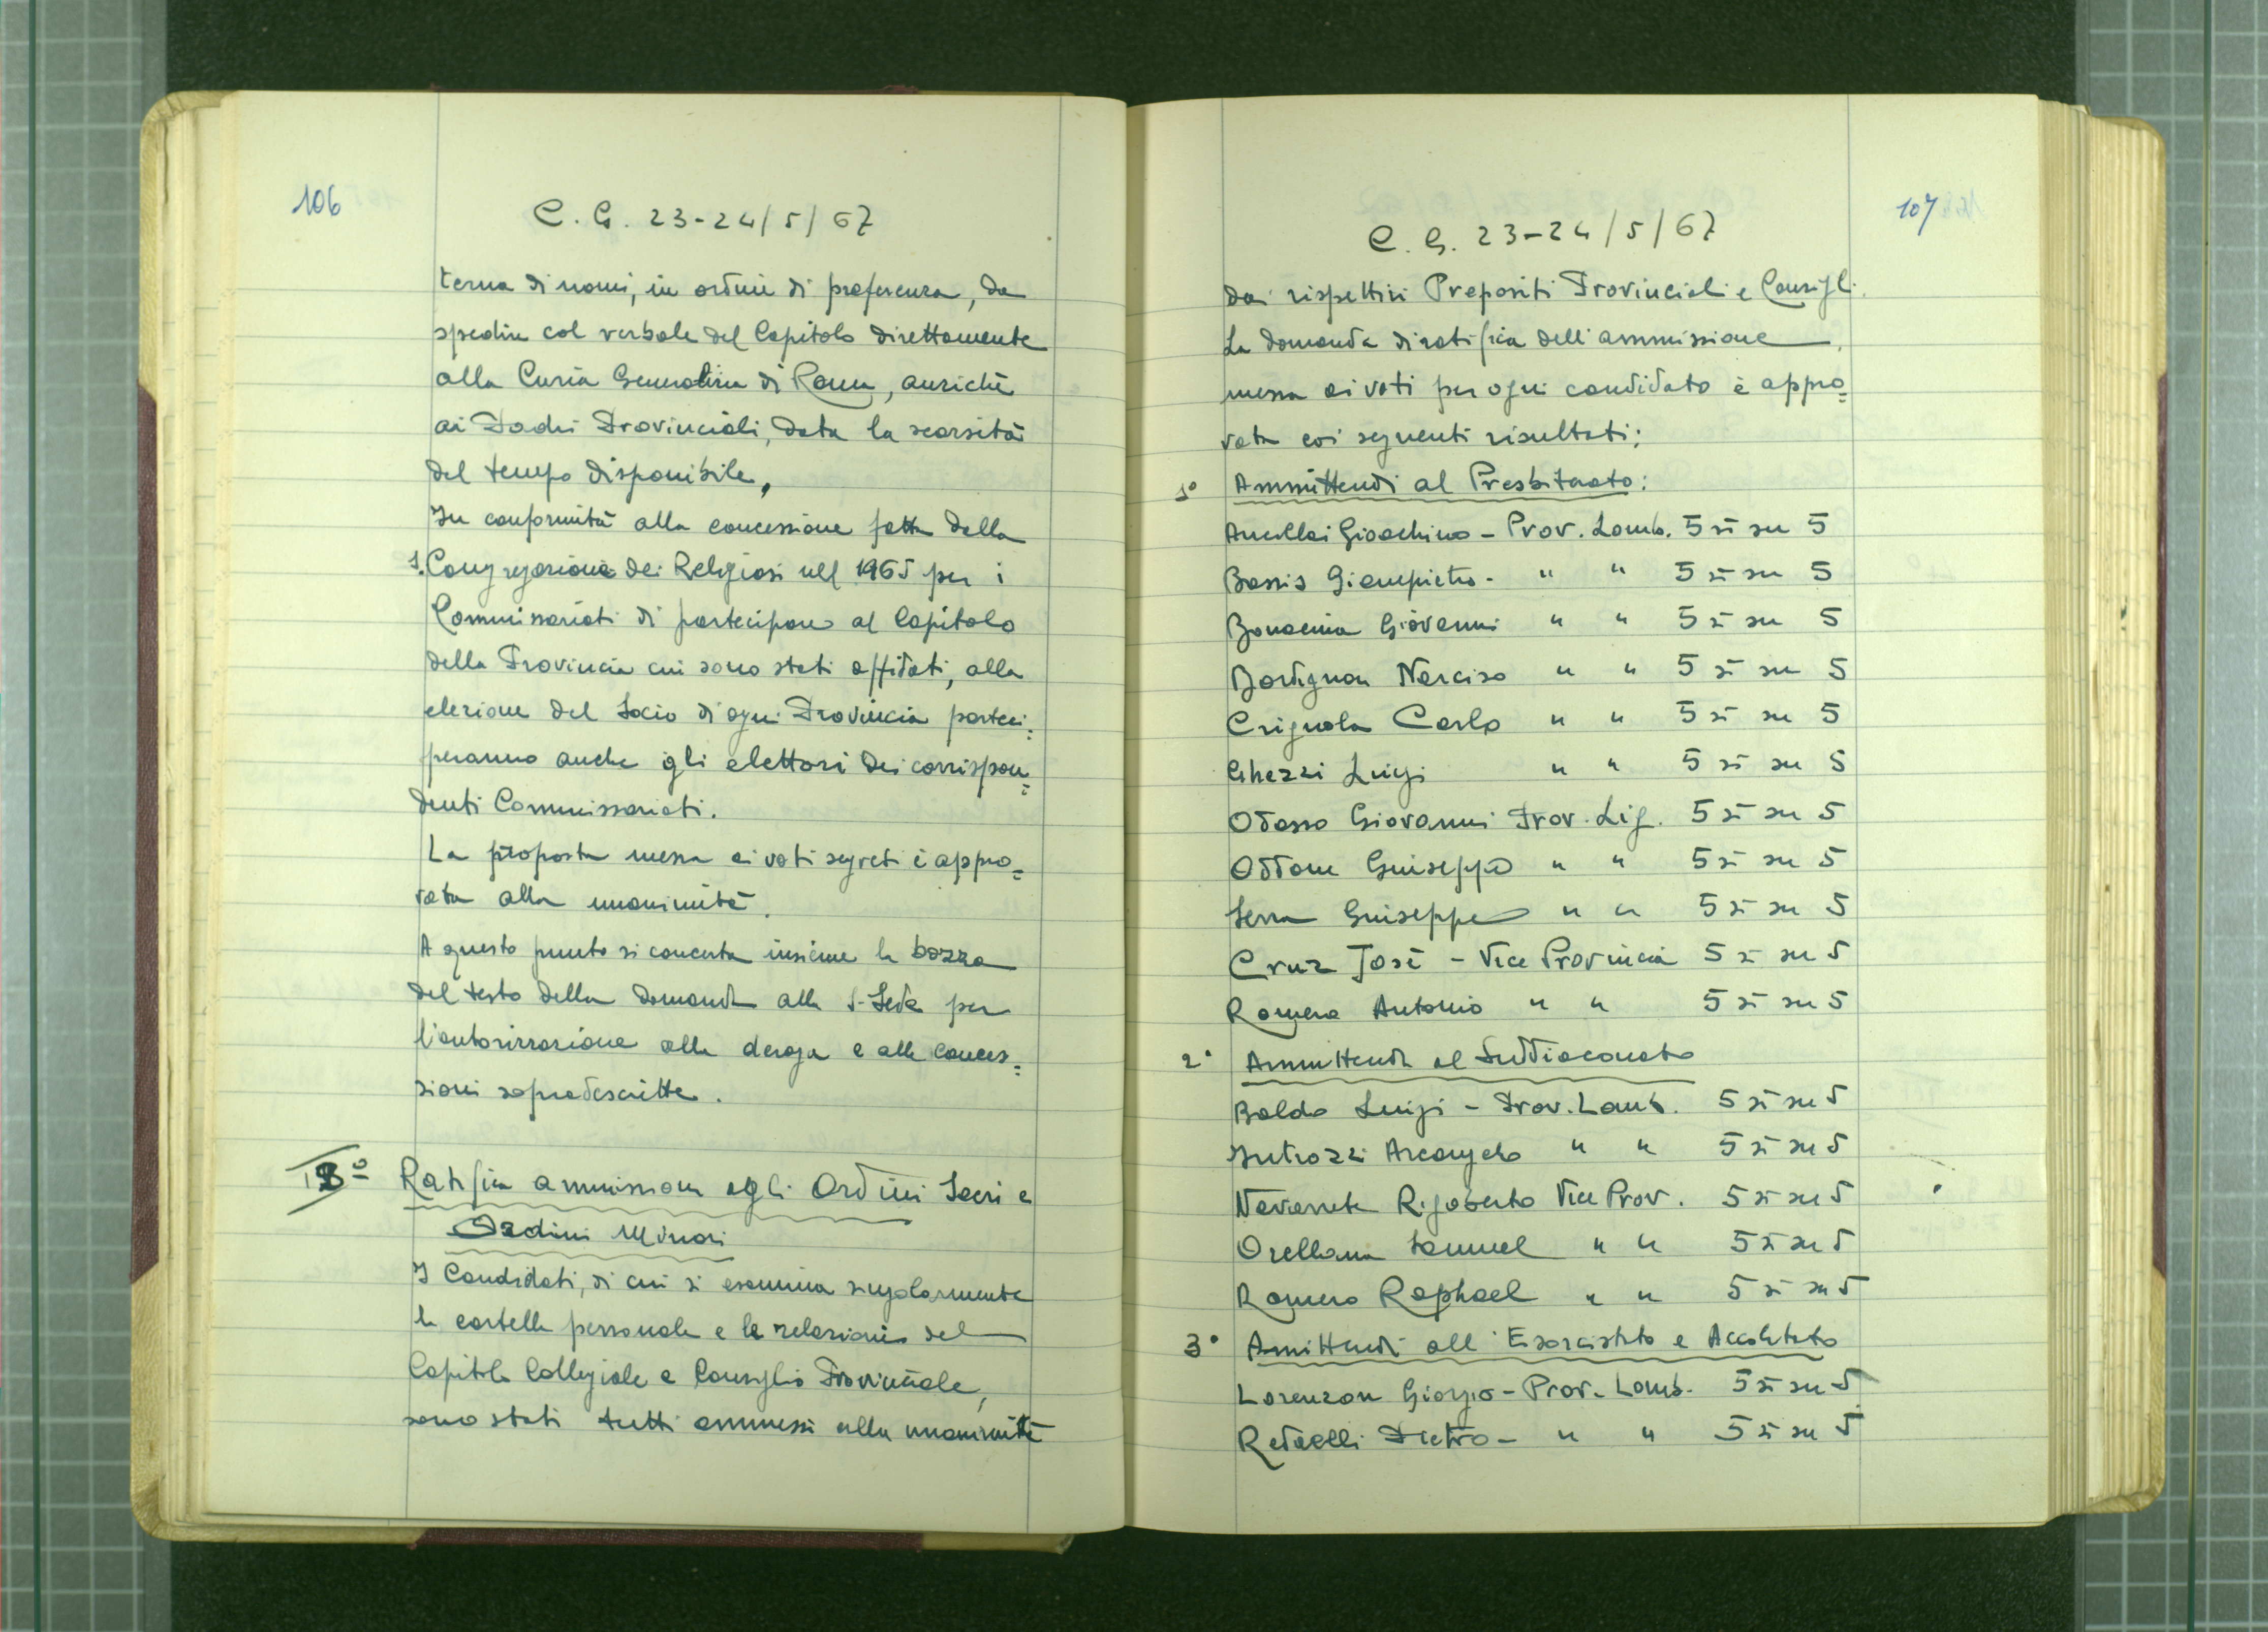 106
C. G. 23-24/5/67
terna di nomi, in ordine di preferenza, da
spedire col verbale del Capitolo direttamente
alla Curia Generalizia di Roma, anziché
ai Padri Provinciali, data la scarsità
del tempo disponibile.
In conformità alla concessione fatta dalla
S. Congregazione dei Religiosi nel 1965 per i
Commissariati di partecipare al Capitolo
della Provincia cui sono stati affidati, alla
elezione del Socio di ogni Provincia parteci=
peranno anche gli elettori dei corrispon=
denti Commissariati.
La proposta messa ai voti segreti è appro=
vata alla unanimità.
A questo punto si concerta insieme la bozza
del testo della domanda alla S. Sede per
l'autorizzazione alla deroga e alle conces=
sioni sopradescritte.
Ratifica ammissione agli Ordini Sacri e
Ordini Minori
I Candidati, di cui si esamina singolarmente
la cartella personale e la relazione del
Capitolo Collegiale e Consiglio Provinciale,
sono stati tutti ammessi alla unanimità
107
C. G. 23-24/5/67
dai rispettivi Prepositi Provinciali e Consigli.
La domanda di ratifica dell'ammissione
messa ai voti per ogni candidato è appro=
vata coi seguenti risultati:
1° Ammittendi al Presbiterato:
Gioachino - Prov. Lomb. 5 sì su 5
Bassis Giampietro - " " 5 sì su 5
Bonacina Giovanni " " 5 sì su 5
Bordignon Narciso " " 5 sì su 5
Crignola Carlo " " 5 sì su 5
Ghezzi Luigi " " 5 sì su 5
Odasso Giovanni Prov. Lig. 5 sì su 5
Oddone Giuseppe " " 5 sì su 5
Serra Giuseppe " " 5 sì su 5
Cruz José - Vice Provincia 5 sì su 5
Romero Antonio " " 5 sì su 5
2° Ammittendi al Suddiaconato
Baldo Luigi - Prov. Lomb. 5 sì su 5
Introzzi Arcangelo " " 5 sì su 5
Navarrete Rigoberto Vice Prov. 5 sì su 5
Orellana Samuel " " 5 sì su 5
Romero Raphael " " 5 sì su 5
3° Amittendi all'Esorcistato e Accolitato
Lorenzon Giorgio - Prov. Lomb. 5 sì su 5
Redaelli Pietro - " " 5 sì su 5